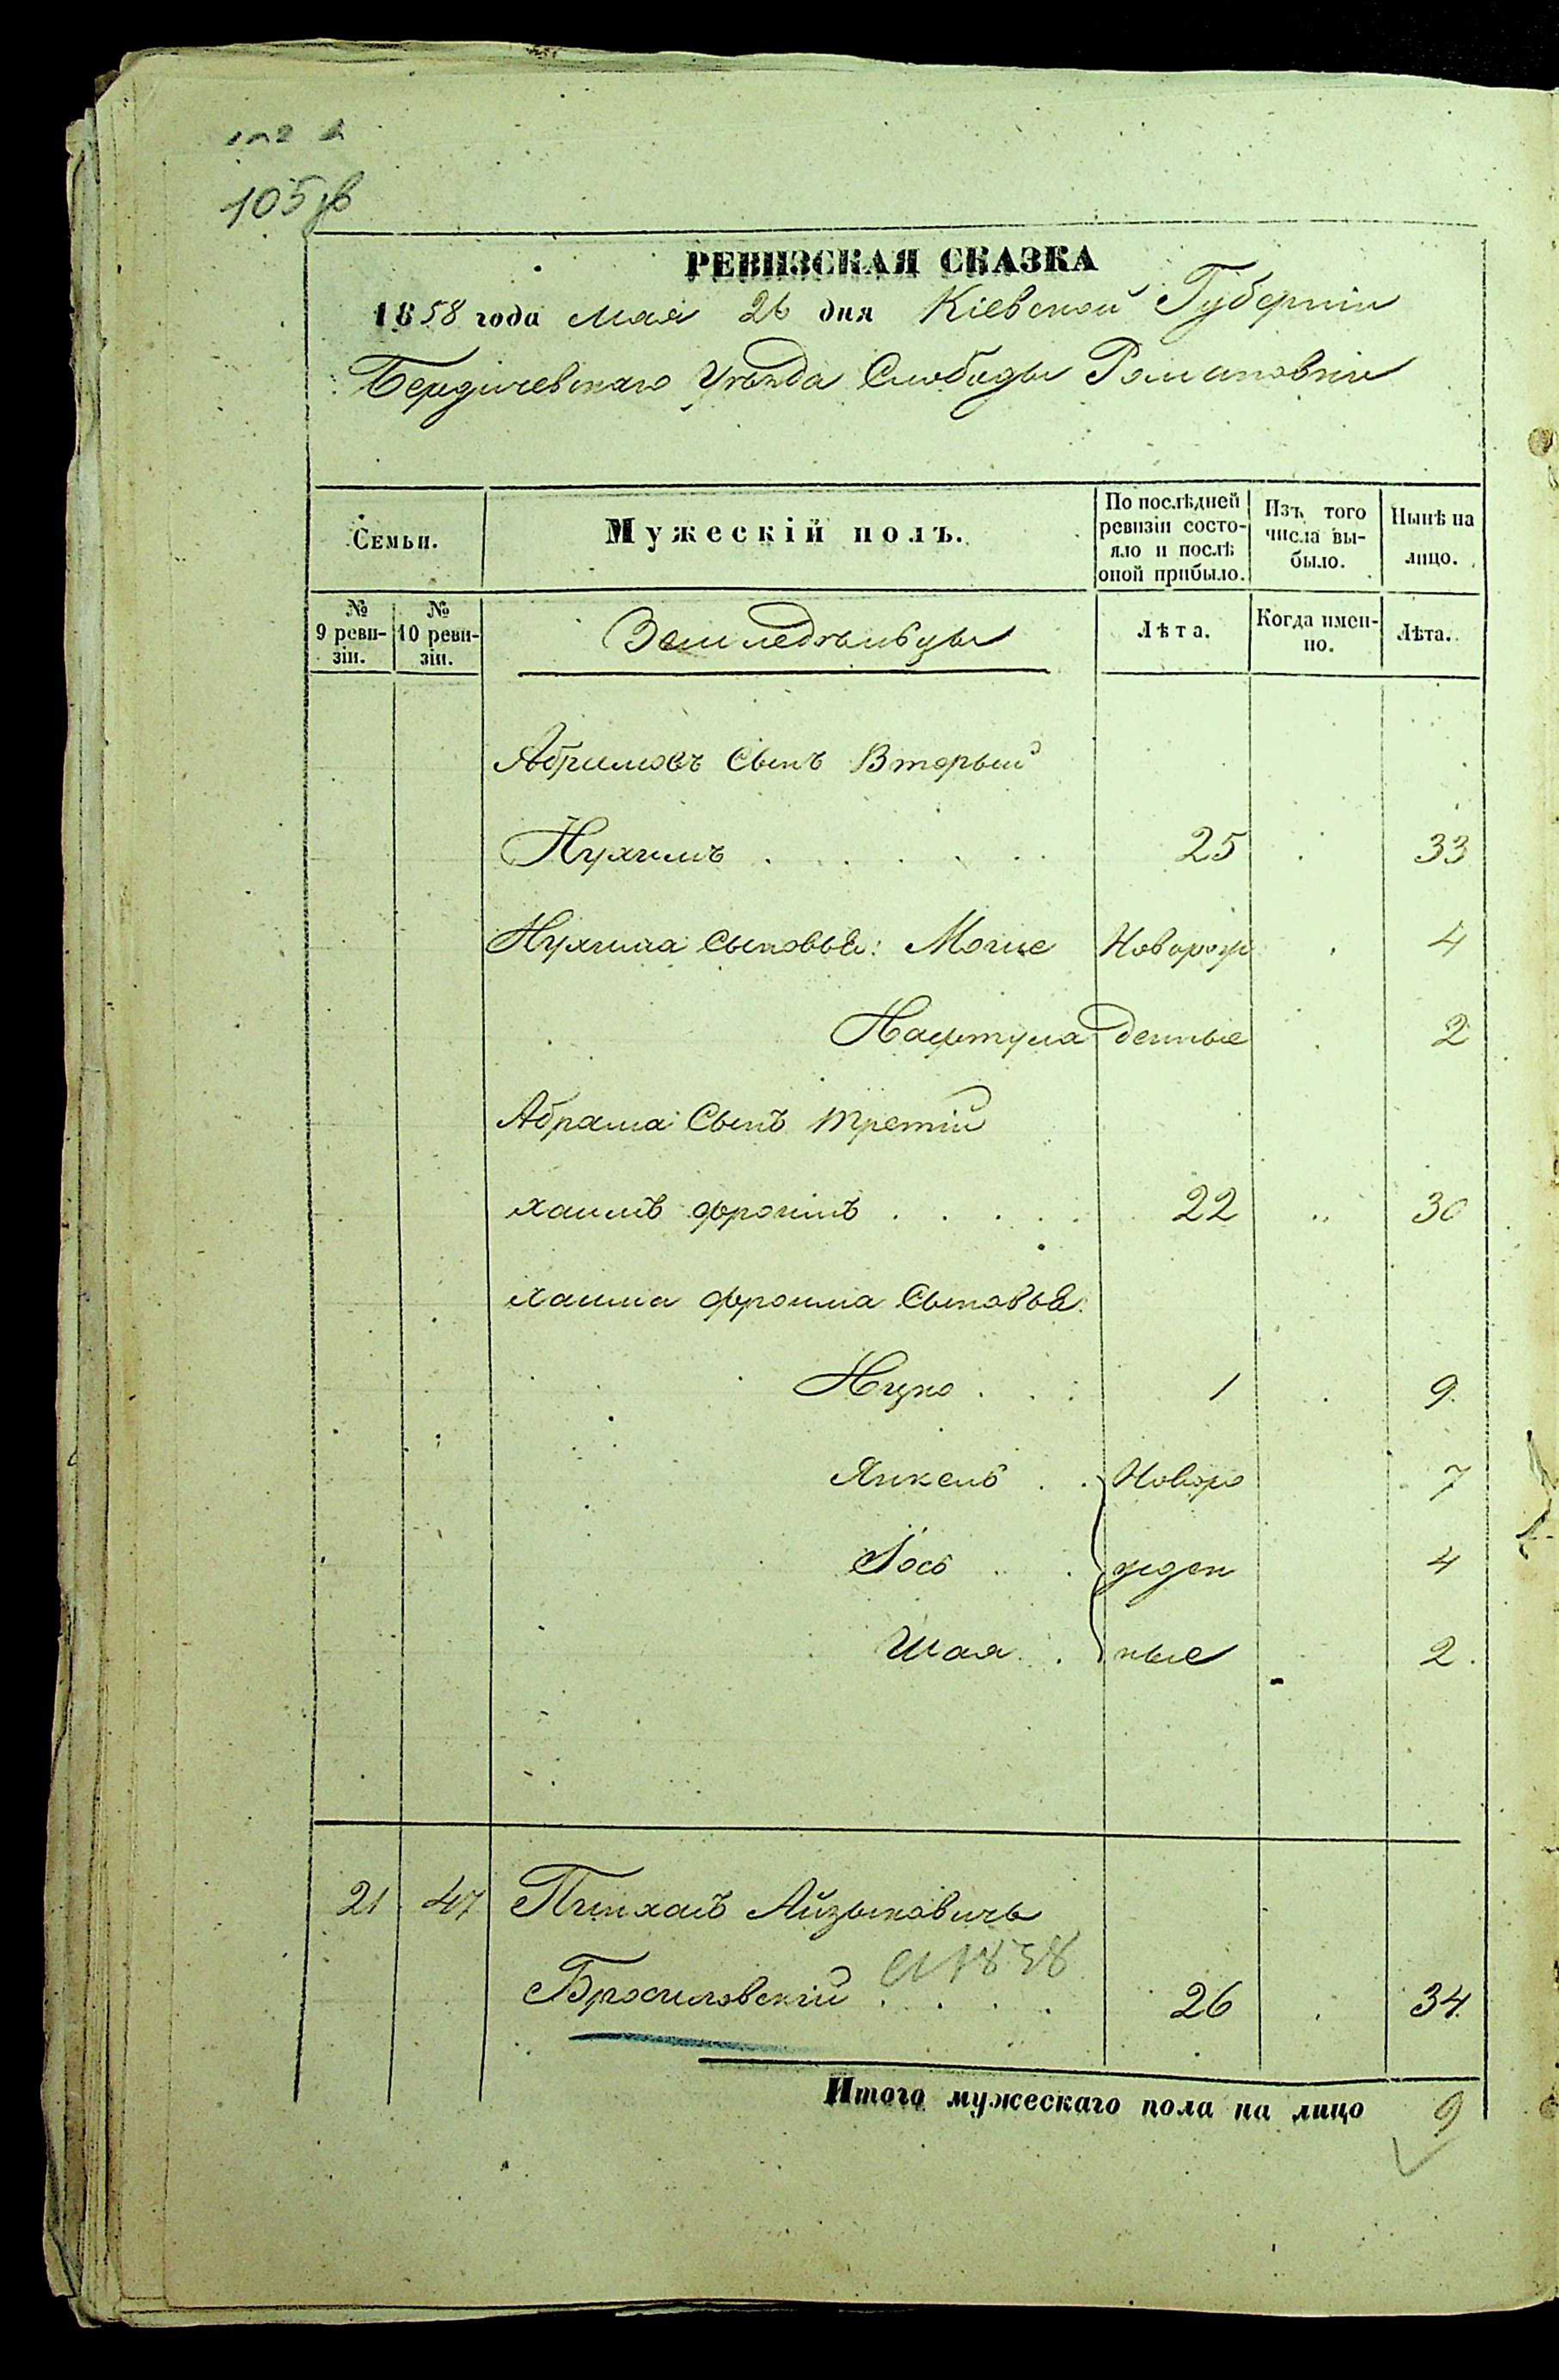 105 об
РЕВИЗСКАЯ СКАЗКА
1858 года Мая 26 дня Кіевской Губерніи
Бердичевскаго Уѣзда Слободы Романовки
Семьи.
Мужескій полъ.
По послѣдней ревизіи состояло и послѣ оной прибыло.
Изъ того числа выбыло.
Нынѣ на лицо.
№ 9 ревизіи.
№ 10 ревизіи.
Земледѣльцы
Лѣта.
Когда именно.
Лѣта.
Абрамовъ Сынъ Вторый
Нухимъ 25 33
Нухима Сыновья: Мошe Новорож 4
Нафтула денные 2
Абрама Сынъ третій
Хаимъ Фроимъ 22 30
Хаима Фроима Сыновья:
Ицко 1 9
Янкель Новоро 7
Іось жден 4
Шая ные 2
21 47 Пинхасъ Айзыковичъ
Брусиловскій 26 34
Итого мужескаго пола на лицо 9